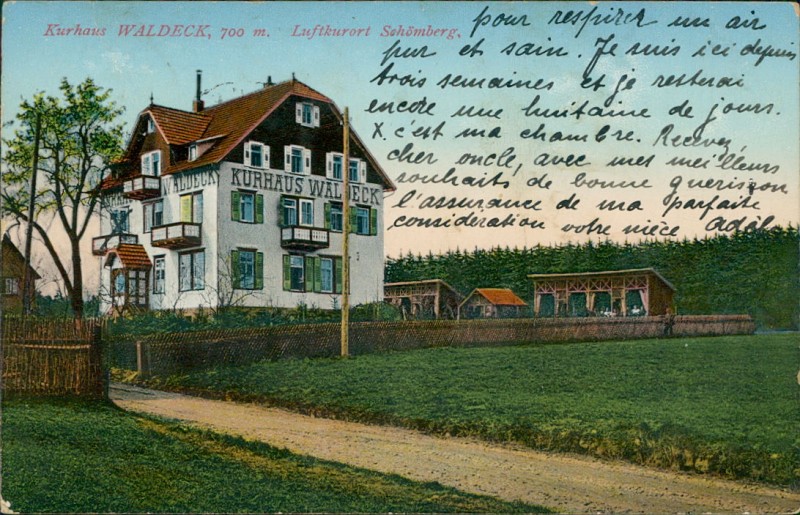 Kurhaus WALDECK, 700 m. Luftkurort Schömberg,
pour respirer un air
pur et sain. Je suis ici depuis
trois semaines et je resterai
encore une huitaine de jours.
X. c'est ma chambre. Recevez,
cher oncle, avec mes meilleurs
souhaits de bonne guérison
l'assurance de ma parfaite
considération votre nièce Adèl
WALDECK
KURHAUS WALDECK